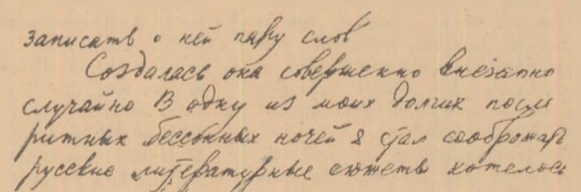 записать о ней пару слов
Создалась она совершенно внезапно
случайно В одну из моих долгих после
ритных бессонных ночей я стал соображать
русские литературные сюжеты хотелось